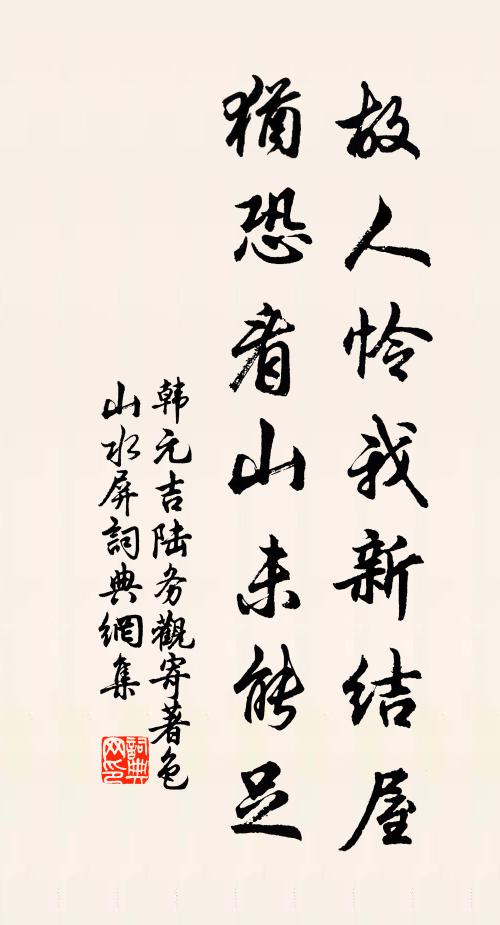 故人怜我新结屋
猶恐看山未能足
韩元吉陆务觀寄著色
山水屏詞典網集
詞典
网印